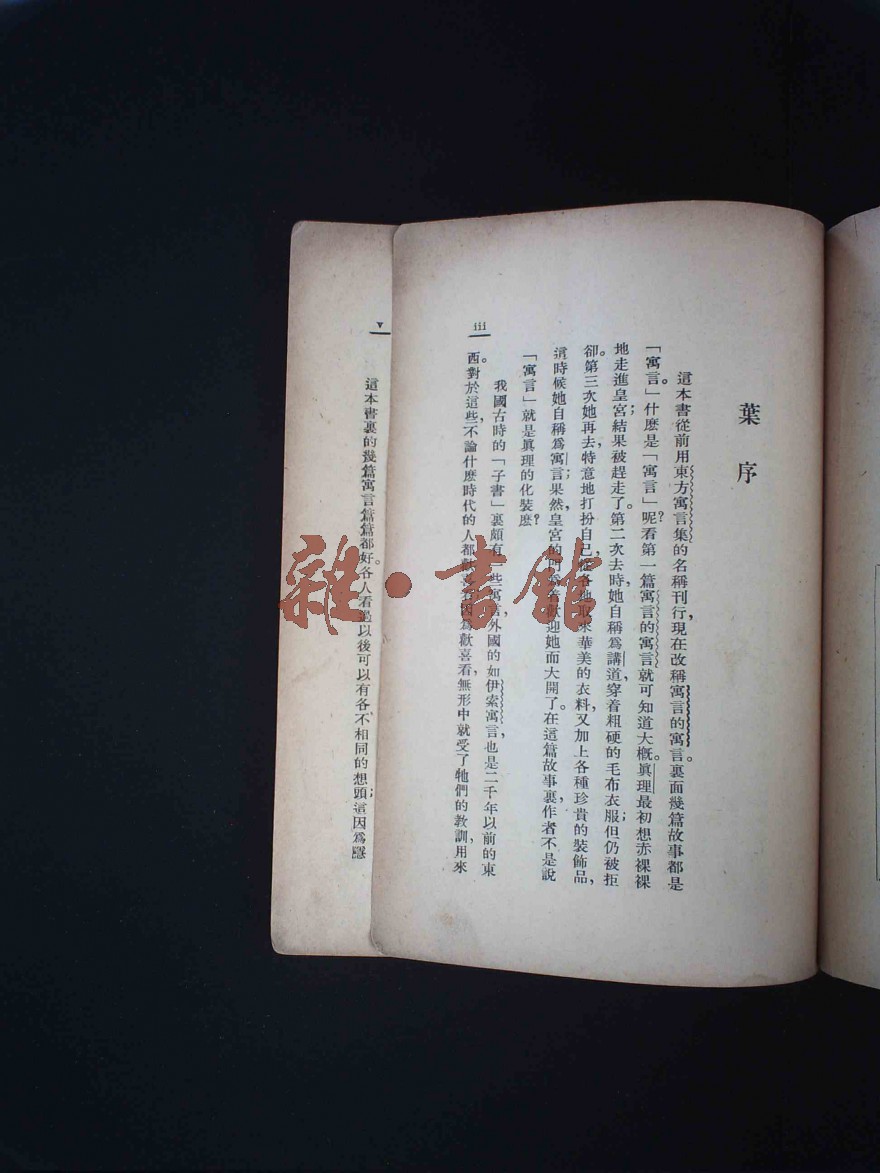 葉序
這本書從前用東方寓言集的名稱刊行，現在改稱寓言的寓言。裏面幾篇故事都是
「寓言。」什麽是「寓言」呢？看第一篇寓言的寓言就可知道大概。眞理最初想赤裸裸
地走進皇宮；結果被趕走了。第二次去時，她自稱爲講道，穿着粗硬的毛布衣服；但仍被拒
卻。第三次她再去，特意地打扮自己，從各地取來華美的衣料，又加上各種珍貴的裝飾品，
這時候她自稱爲寓言；果然，皇宮的門爲着歡迎她而大開了。在這篇故事裏，作者不是說
「寓言」就是眞理的化裝麽？
我國古時的「子書」裏頗有一些寓言，外國的如伊索寓言，也是二千年以前的東
西。對於這些，不論什麽時代的人都歡喜看，因爲歡喜看，無形中就受了牠們的教訓，用來
iii
這本書裏的幾篇寓言篇篇都好。各人看過以後，可以有各不相同的想頭；這因爲隱
v
雜·書館